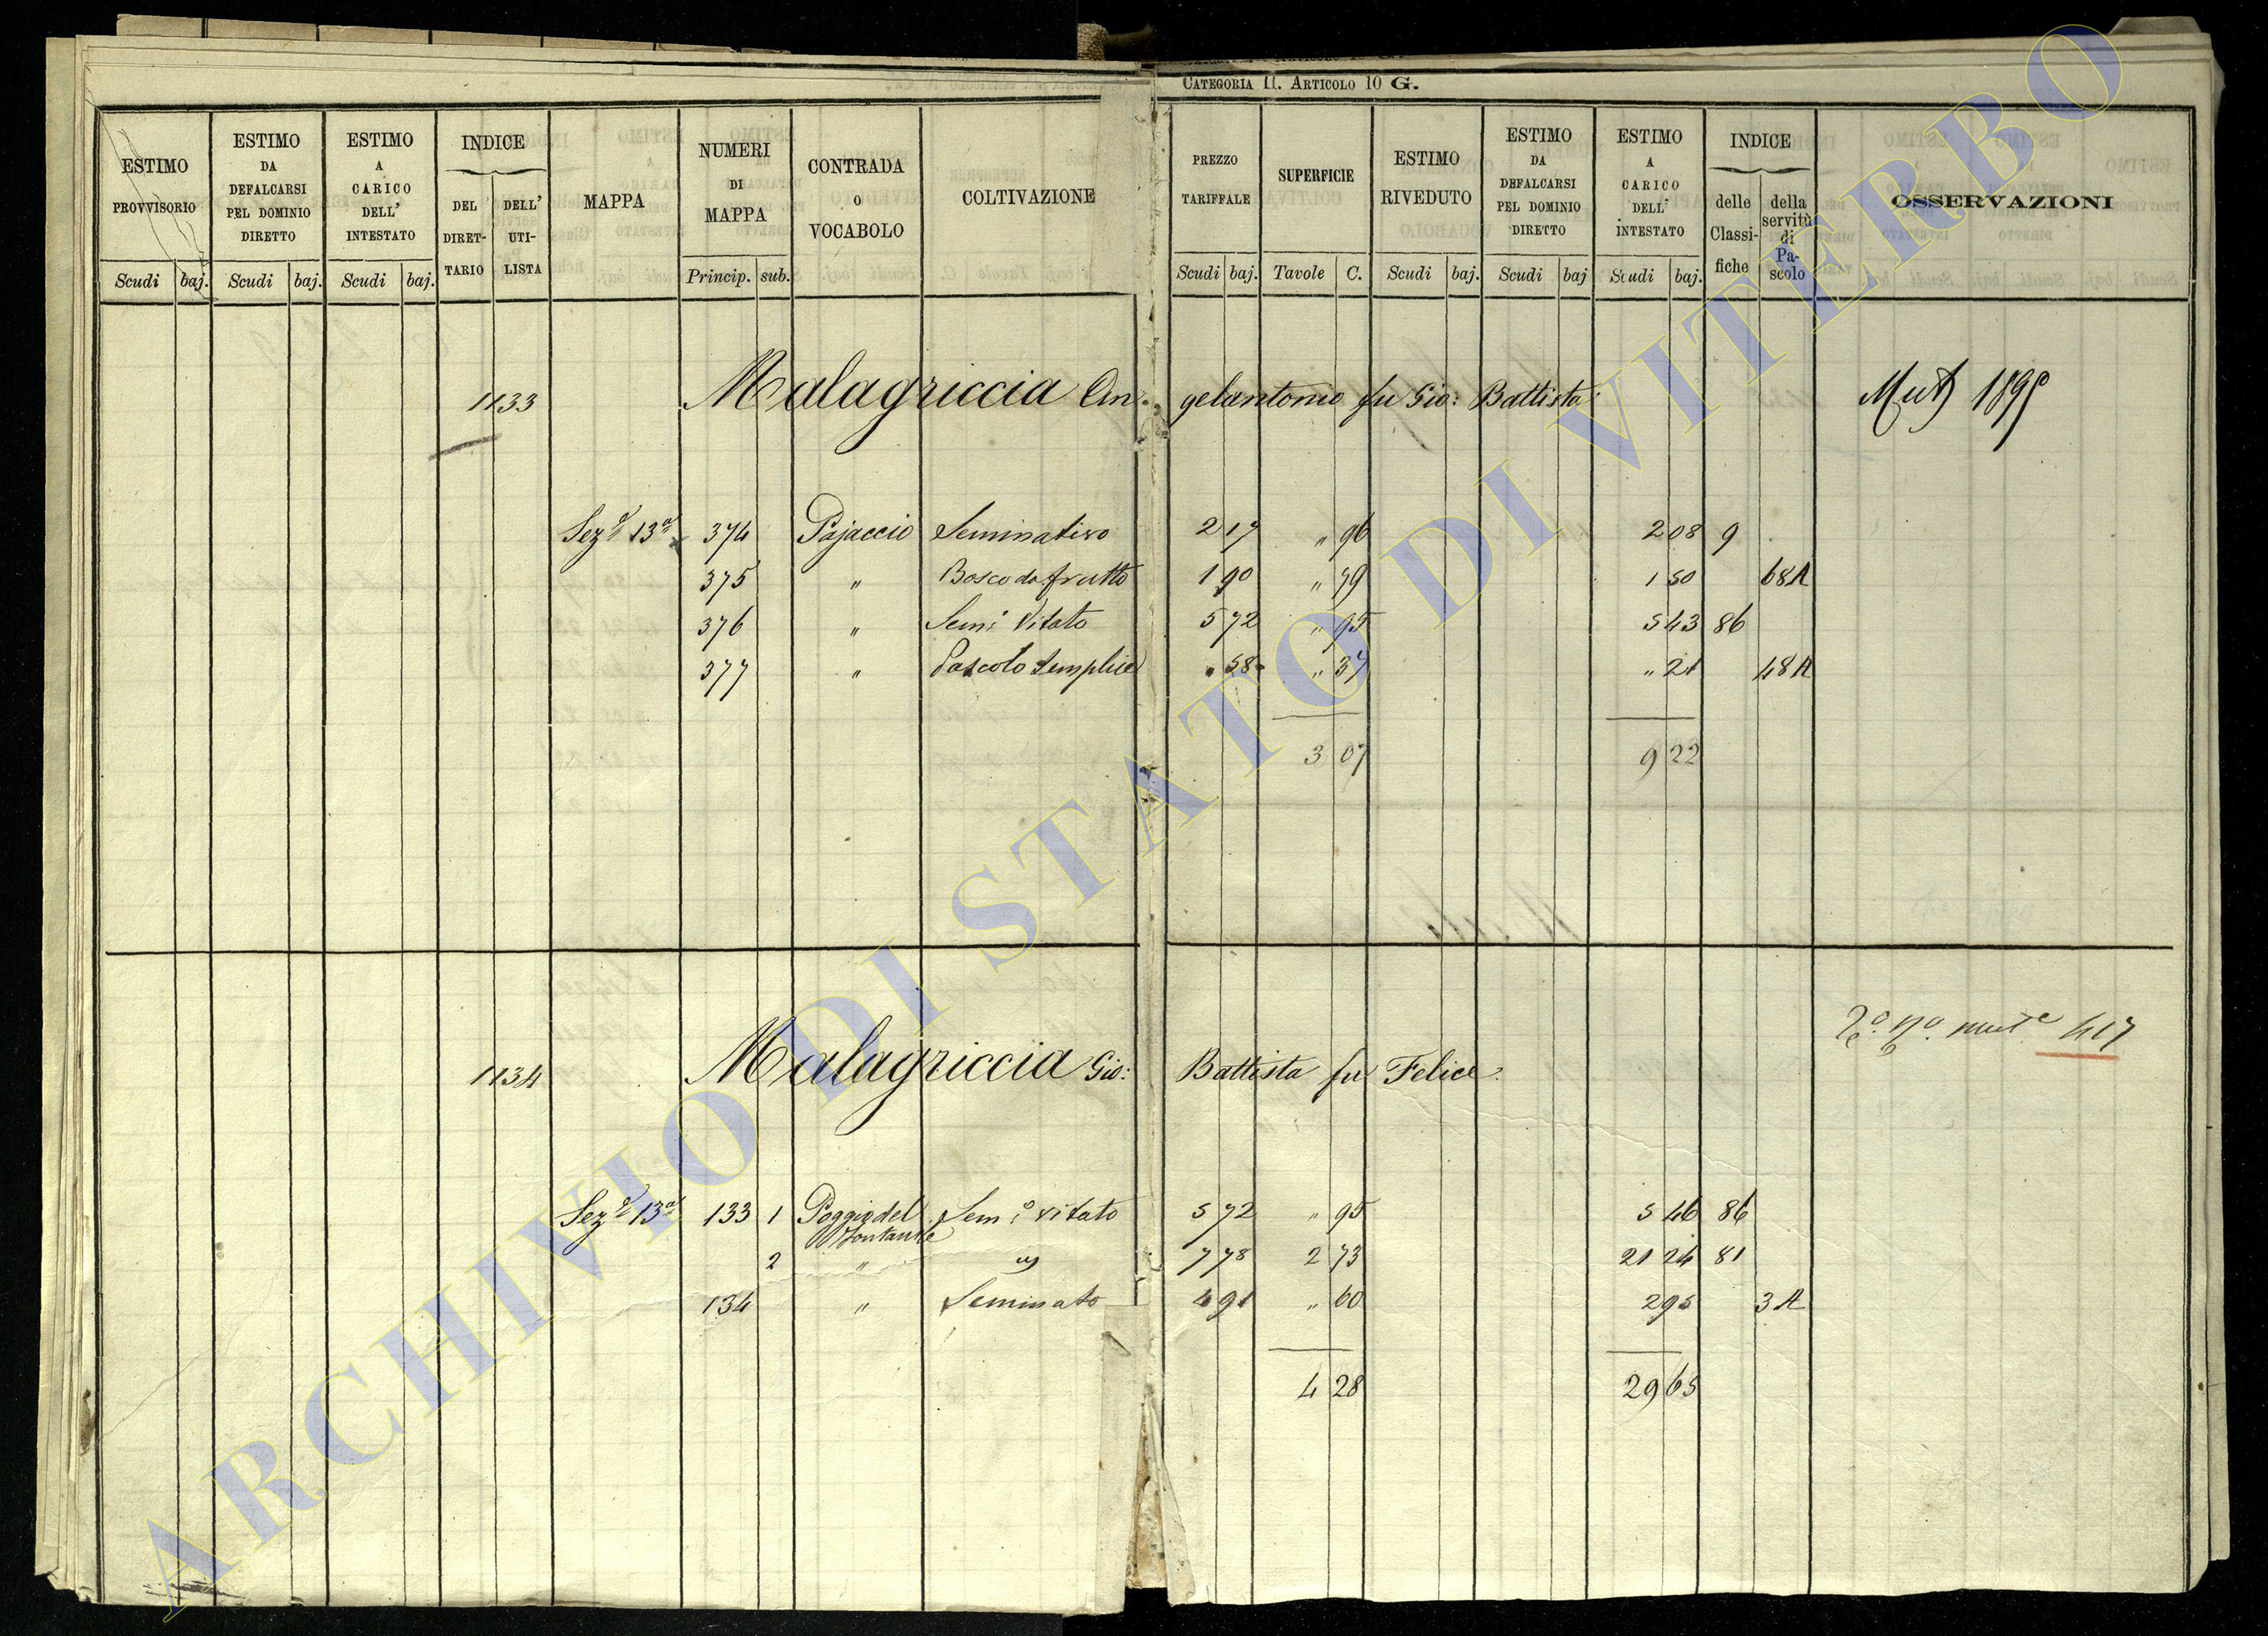 CATEGORIA II. ARTICOLO 10 G.
ESTIMO PROVVISORIO Scudi baj.
ESTIMO DA DEFALCARSI PEL DOMINIO DIRETTO Scudi baj.
ESTIMO A CARICO DELL' INTESTATO Scudi baj.
INDICE DEL DIRET-TARIO DELL' UTI-LISTA
MAPPA
NUMERI DI MAPPA Princip. sub.
CONTRADA O VOCABOLO
COLTIVAZIONE
PREZZO TARIFFALE Scudi baj.
SUPERFICIE Tavole C.
ESTIMO RIVEDUTO Scudi baj.
ESTIMO DA DEFALCARSI PEL DOMINIO DIRETTO Scudi baj
ESTIMO A CARICO DELL' INTESTATO Scudi baj.
INDICE delle Classi-fiche della servitù di Pa-scolo
OSSERVAZIONI
1133 Malagriccia An- gelantonio fu Gio: Battista
Seze 13a 374 Pajaccio Seminativo 2 17 " 96 2 08 9
375 " Bosco da frutto 1 90 " 79 1 50 68A
376 " Semi Vitato 5 72 " 95 5 43 86
377 " Pascolo Semplice " 58 " 37 " 21 48A
3 07 9 22
1134 Malagriccia Gio: Battista fu Felice 417
Seze 13a 133 1 Poggio del Semo vitato 5 72 " 95 5 46 86
2 " 7 78 2 73 21 24 81
134 " Seminato 4 91 " 60 2 95 3A
4 28 29 65
ARCHIVIO DI STATO DI VITERBO